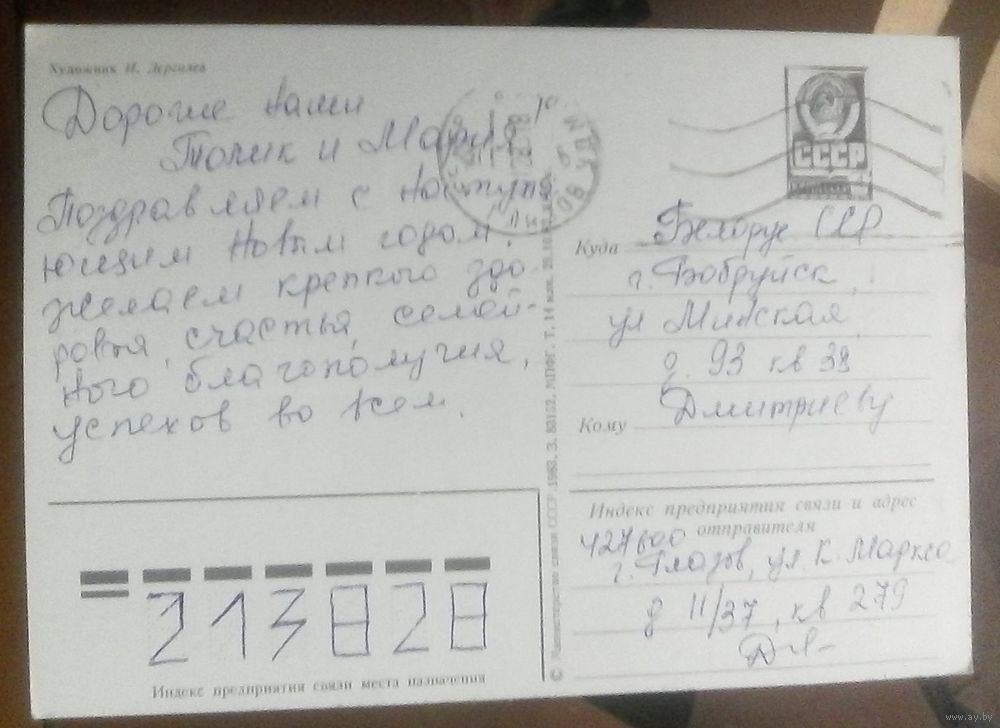 Художник И. Дергилев
Дорогие наши
Толик и Мария
Поздравляем с наступа-
ющим Новым годом.
Желаем крепкого здо-
ровья, счастья, семей-
ного благополучия,
успехов во всем.
СССР
Куда Белорус ССР
г. Бобруйск
ул Минская
д. 93 кв 38
Кому Дмитриеву
Индекс предприятия связи и адрес
отправителя
427600
г. Глазов, ул. К. Маркса
д 11/37, кв 279
© Министерство связи СССР. 1983. З. 83152. МПФГ. Т. 14 млн.
213828
Индекс предприятия связи места назначения
www.ay.by